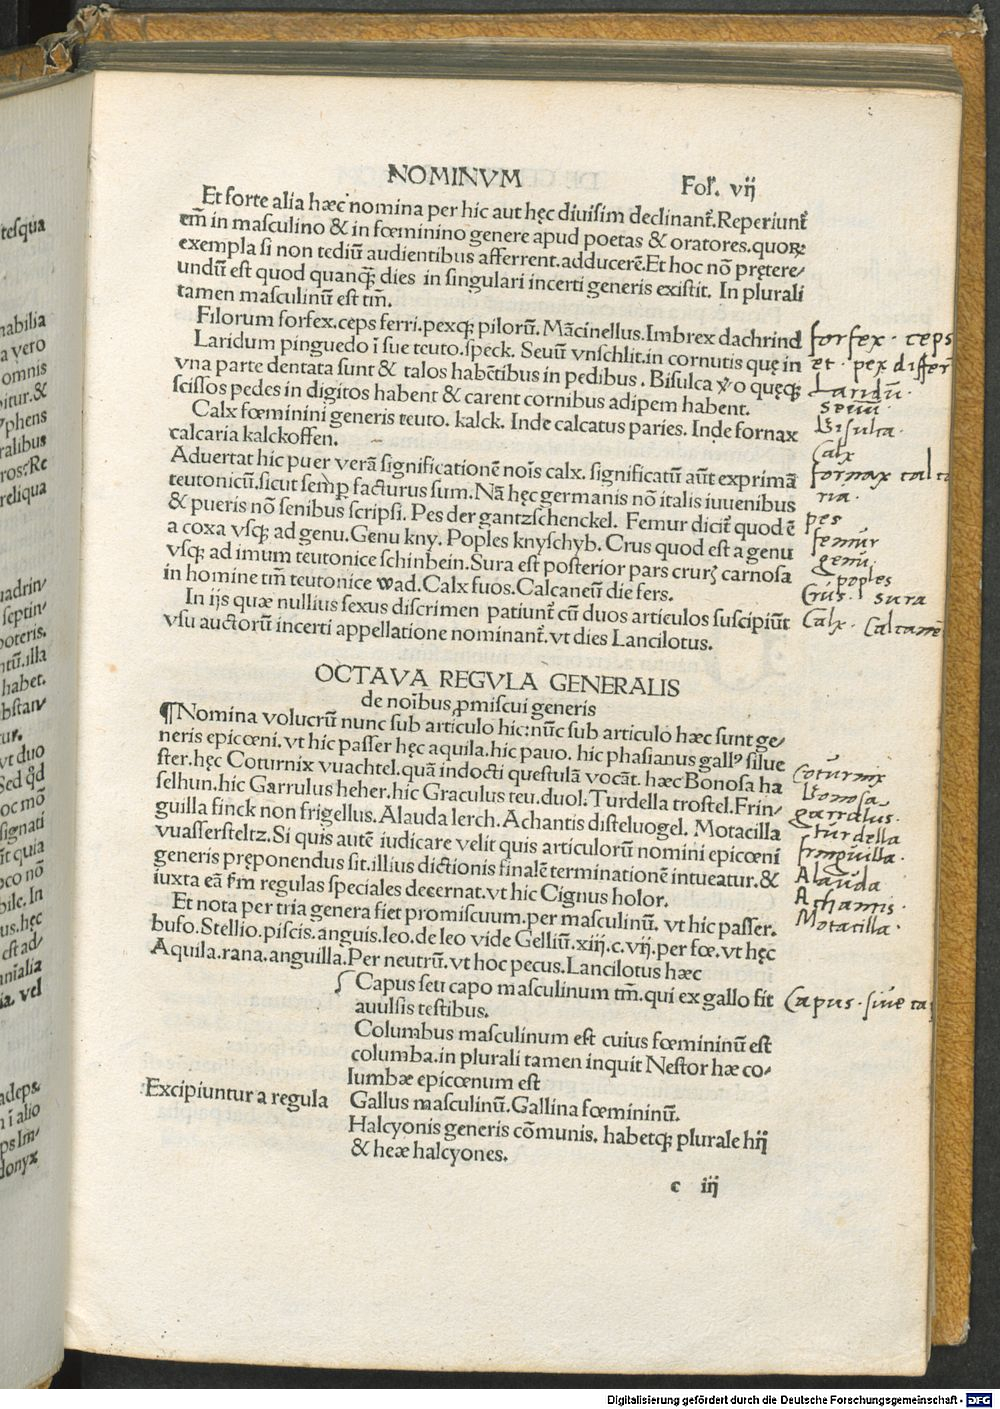 NOMINVM
Folꝛ. vij
Et forte alia hæc nomina per hic aut hęc diuisim declinant̃. Reperiunt̃
em̃ in masculino & in fœminino genere apud poetas & oratores. quoꝝ
exempla si non tediũ audientibus afferrent. adducerẽ. Et hoc nõ prętere/
undũ est quod quanꝗ̃ dies in singulari incerti generis existit. In plurali
tamen masculinũ est tm̃.
Filorum forfex. ceps ferri. pexqꝫ pilorũ. Mãcinellus. Imbrex dachrind
Laridum pinguedo ĩ sue teuto. speck. Seuũ vnschlit. in cornutis quę in
vna parte dentata sunt & talos habẽtibus in pedibus. Bisulca ṽo quęqꝫ
scissos pedes in digitos habent & carent cornibus adipem habent.
Calx fœminini generis teuto. kalck. Inde calcatus paries. Inde fornax
calcaria kalckoffen.
Aduertat hic puer verã significationẽ nois calx. significatũ aũt exprimã
teutonicũ. sicut semp̱ facturus sum. Nã hęc germanis nõ italis iuuenibus
& pueris nõ senibus scripsi. Pes der gantzschenckel. Femur dicit̃ quod ẽ
a coxa vsqꝫ ad genu. Genu kny. Poples knyschyb. Crus quod est a genu
vsqꝫ ad imum teutonice schinbein. Sura est posterior pars crurꝭ carnosa
in homine tm̃ teutonice wad. Calx fuos. Calcaneũ die fers.
In ijs quæ nullius sexus discrimen patiunt̃ cũ duos articulos suscipiũt
vsu auctorũ incerti appellatione nominant̃. vt dies Lancilotus.
OCTAVA REGVLA GENERALIS
de noĩbus ꝓmiscui generis
¶Nomina volucrũ nunc sub articulo hic: nũc sub articulo hæc sunt ge/
neris epicœni. vt hic passer hęc aquila. hic pauo. hic phasianus gallꝰ silue
ster. hęc Coturnix vuachtel. quã indocti questulã vocãt. hæc Bonosa ha
selhun. hic Garrulus heher. hic Graculus teu. duol. Turdella trostel. Frin/
guilla finck non frigellus. Alauda lerch. Achantis disteluogel. Motacilla
vuassersteltz. Si quis autẽ iudicare velit quis articulorũ nomini epicœni
generis pręponendus sit. illius dictionis finalẽ terminationẽ intueatur. &
iuxta eã fm̃ regulas speciales decernat. vt hic Cignus holor.
Et nota per tria genera fiet promiscuum. per masculinũ. vt hic passer.
bufo. Stellio. piscis. anguis. leo. de leo vide Gelliũ. xiij. c. vij. per fœ. vt hęc
Aquila. rana. anguilla. Per neutrũ. vt hoc pecus. Lancilotus hæc
Capus seu capo masculinum tm̃. qui ex gallo fit
auulsis testibus.
Columbus masculinum est cuius fœmininũ est
columba. in plurali tamen inquit Nestor hæ co/
lumbæ epicœnum est
Excipiuntur a regula
Gallus masculinũ. Gallina fœmininũ.
Halcyonis generis cõmunis. habetqꝫ plurale hij
& heæ halcyones.
c iij
forfex. ceps
et. pex differ
Laridũ.
Seuũ.
Bisulca.
Calx
fornax calca
ria.
pes
femur
genu
poples
Crus. sura
Calx. Calcane
Coturnix
Bonosa
garralus.
turdella
fringuilla.
Alauda
Achantis.
Motacilla.
Capus. siue ca
tesqua
habilia
a vero
omnis
bitur. &
yphens
ralibus
ros: Re
reliqua
uadrin/
septin/
poteris.
ntũ. illa
habet.
bstan/
tur.
vt duo
Sed qđ
oc mõ
signati
ĩt quia
oco nõ
bile. In
us. hęc
est ad/
nnialia
ia. vel
adeps.
n ĩ alio
ps Im/
donyx
Digitalisierung gefördert durch die Deutsche Forschungsgemeinschaft - DFG